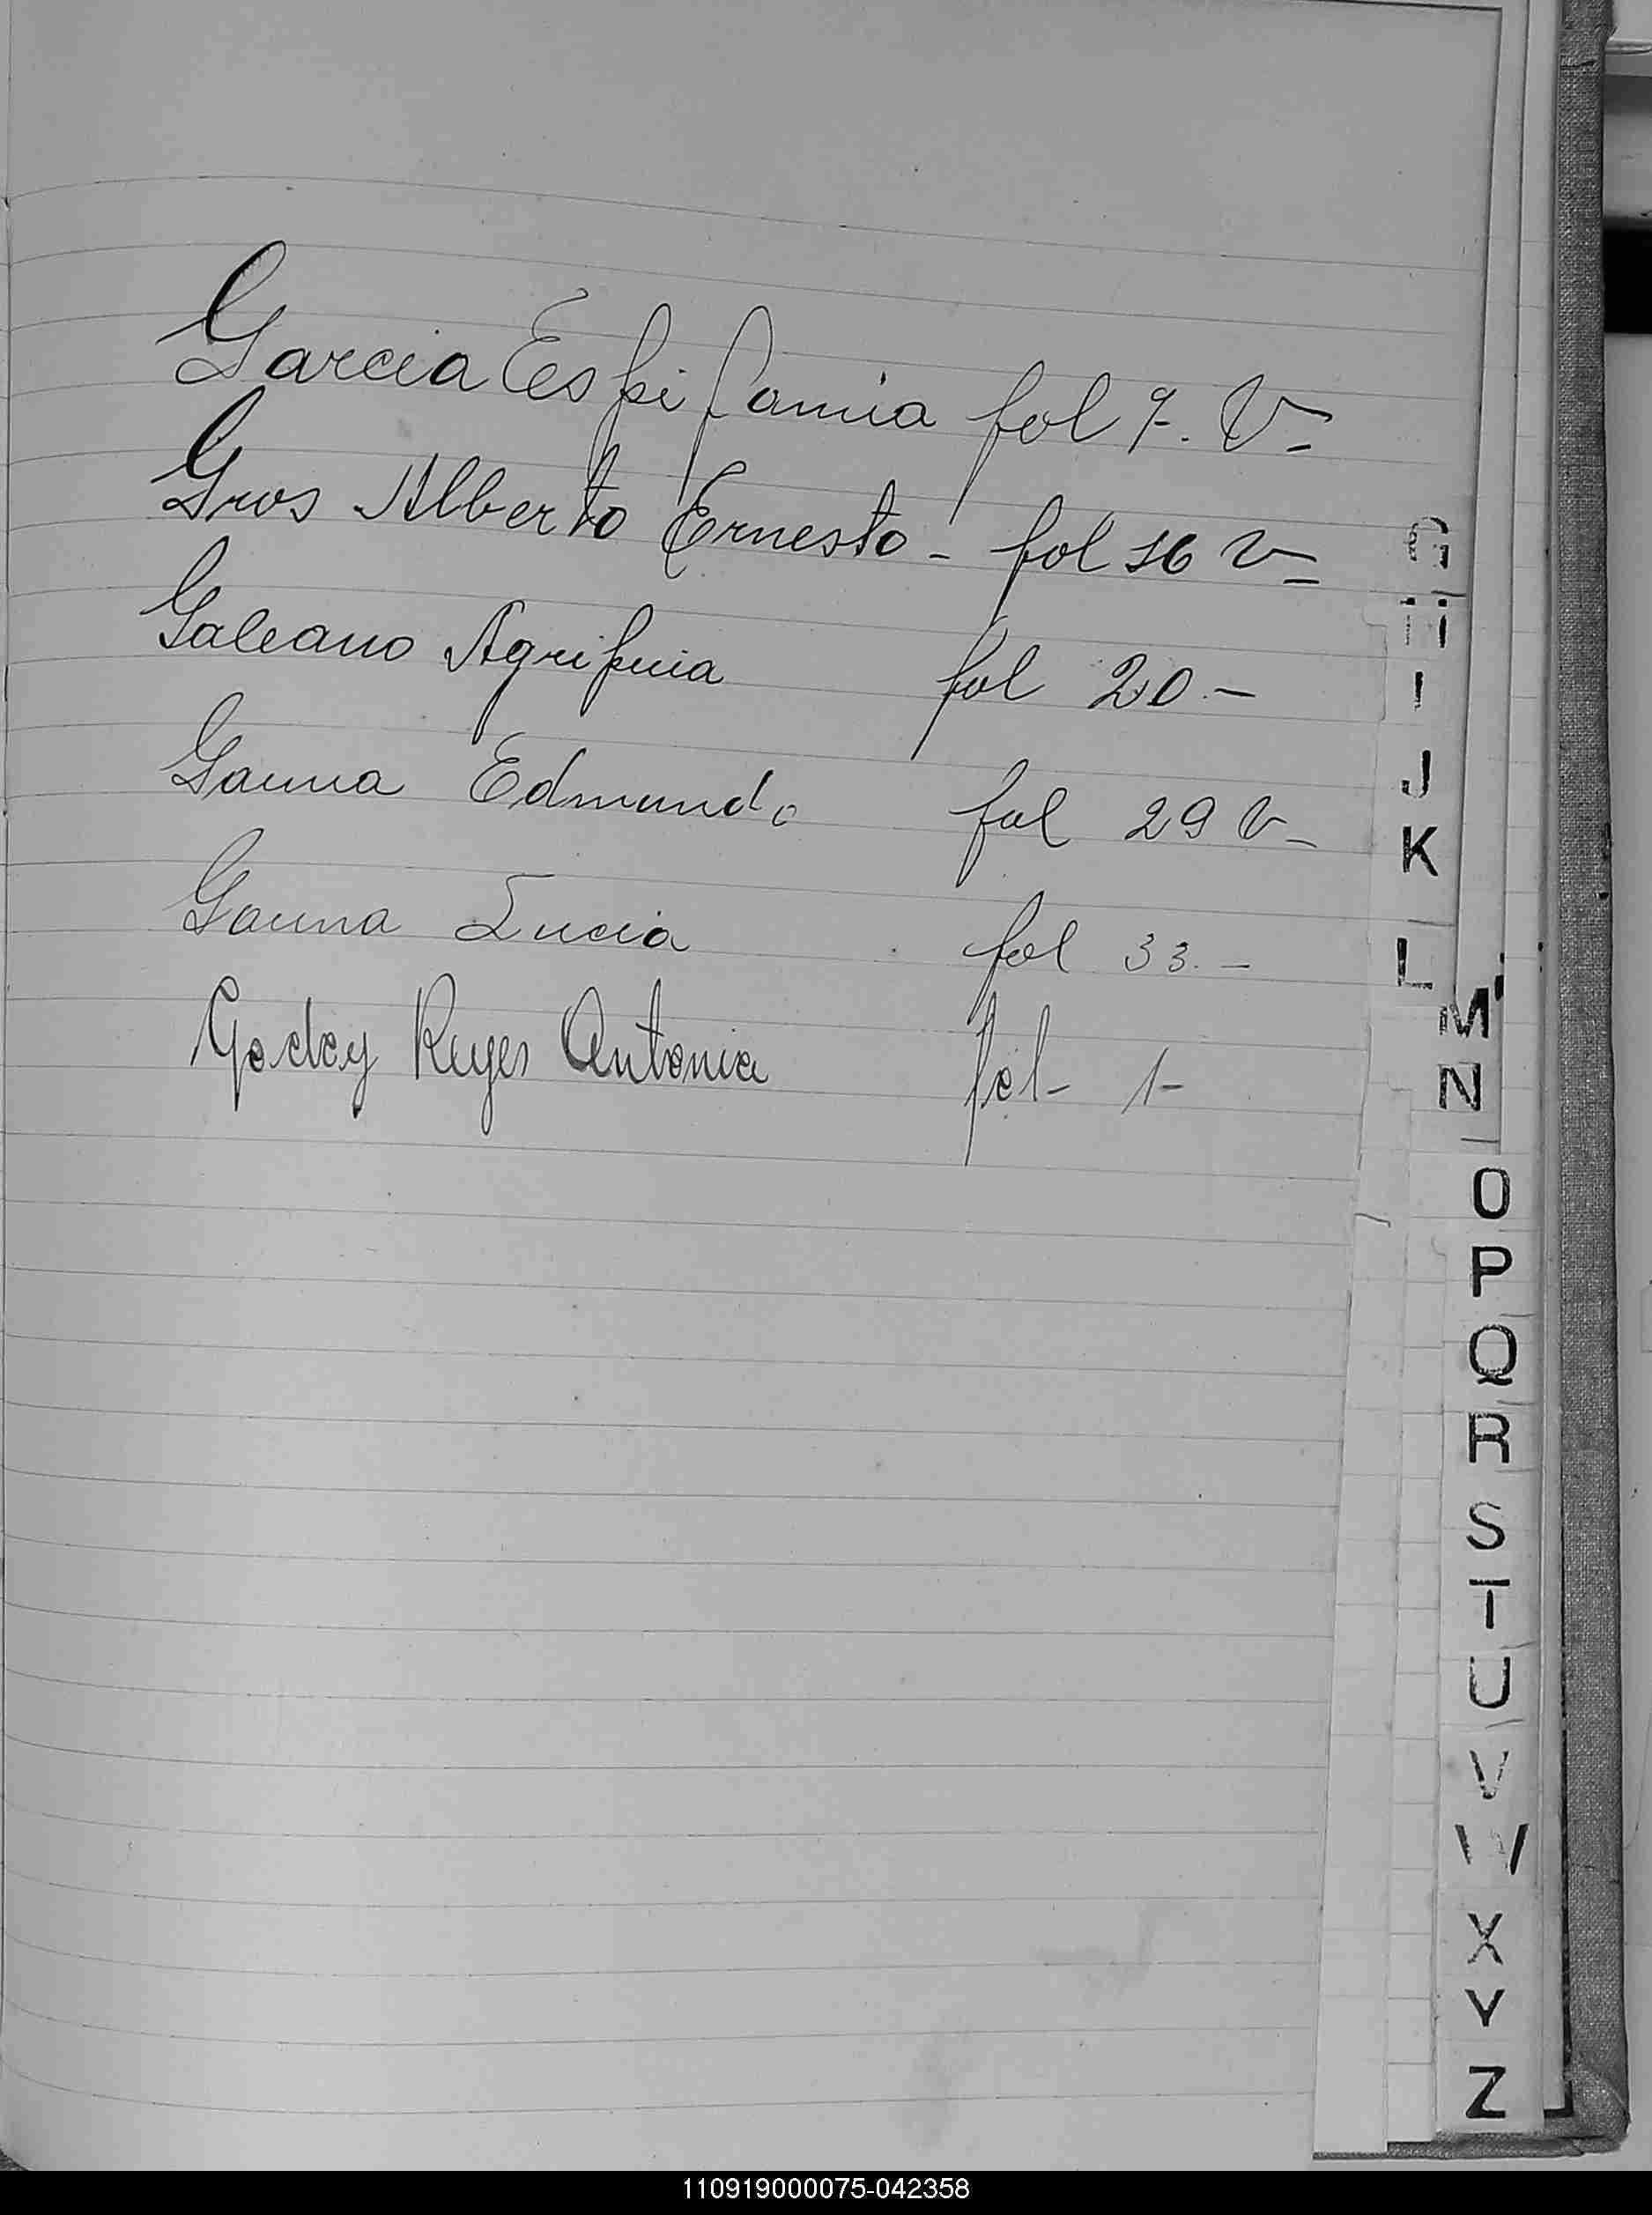 Garcia Espifania fol 7. V-
Gros Alberto Ernesto - fol 16 V-
Galeano Agripina fol 20.-
Gauna Edmundo fol 29 V-
Gauna Lucia fol 33.-
Godoy Reyes Antonia fol- 1-
G
H
I
J
K
L
M
N
O
P
Q
R
S
T
U
V
W
X
Y
Z
110919000075-042358